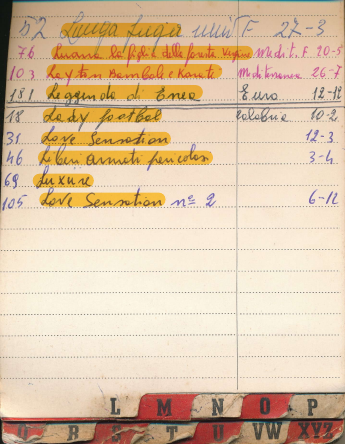 52 Lunga fuga unit F 27-3
76 Luana la figlia della foresta vergine Medit. F 20-5
103 Lady ten Bambole e Karate Mediterranea 26-7
181 Leggenda di Enea Euro 12-12
18 Lady football Calabria 10-2
31 Love Sensation 12-3
46 Liberi armati pericolosi 3-4
69 Luxure
105 Love Sensation nº 2 6-12
L M N O P
Q R S T U VW XYZ